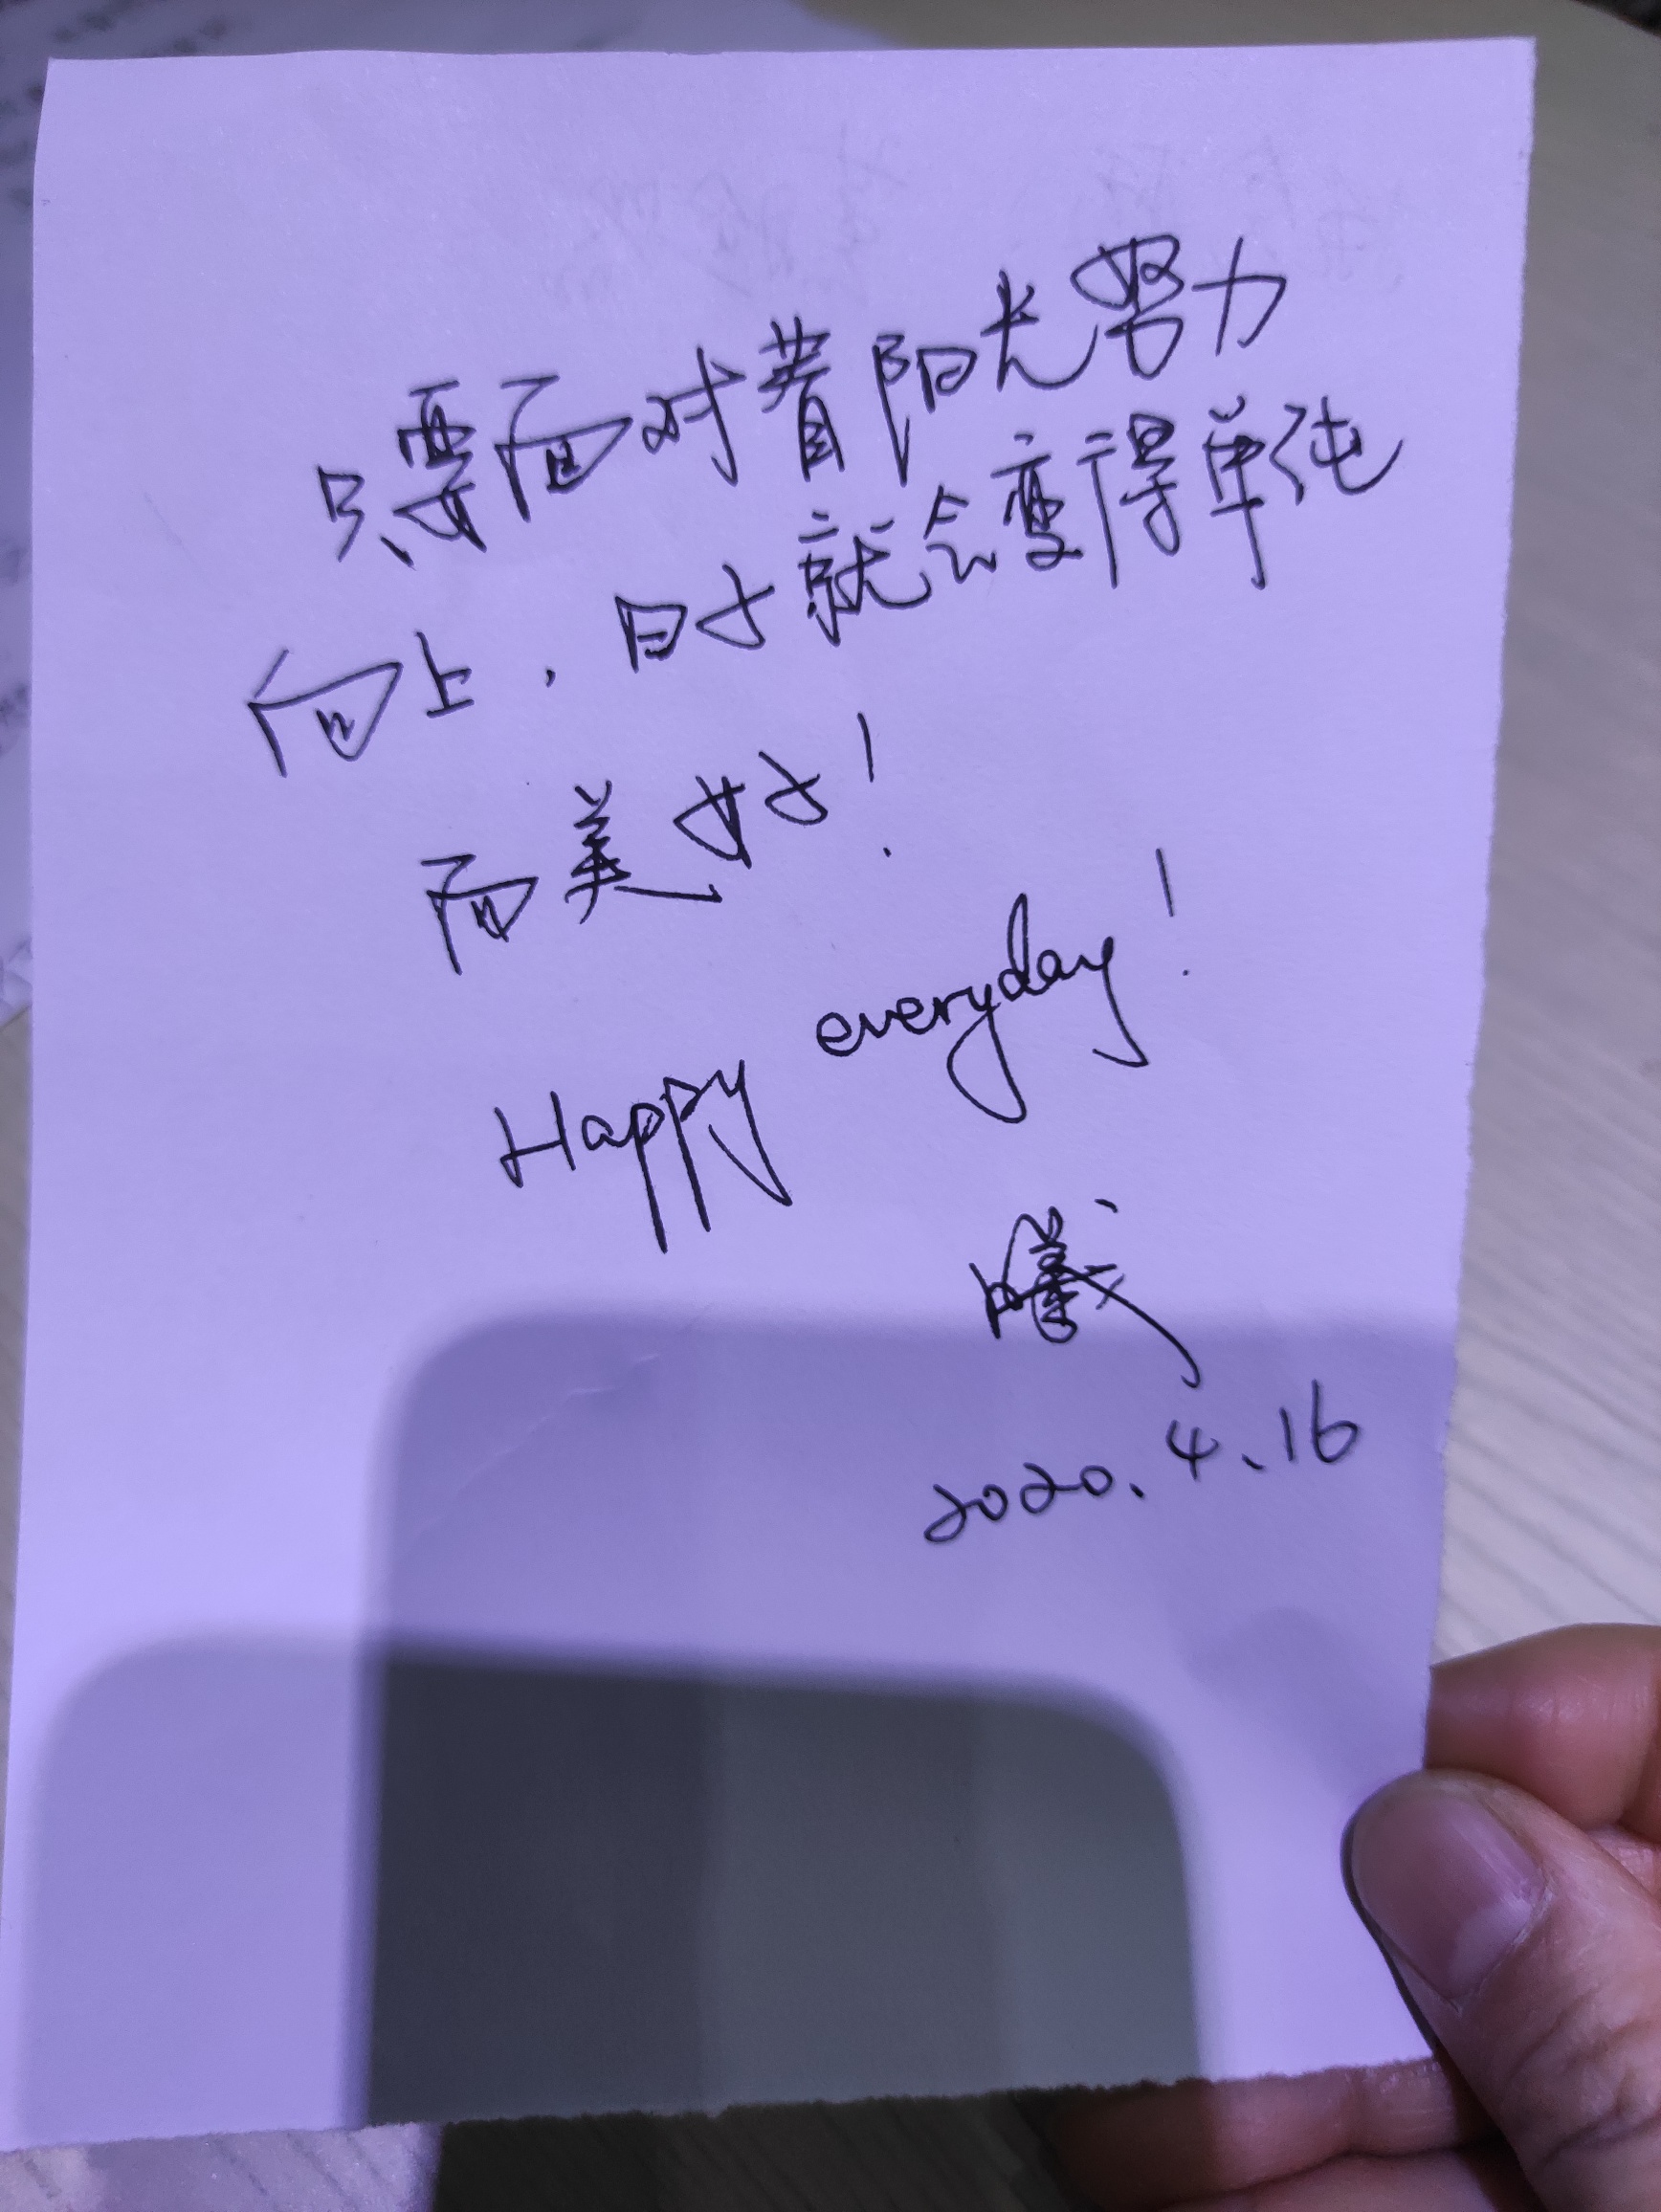 只要面对着阳光努力
向上，日子就会变得单纯
而美好！
Happy everyday!
曦
2020.4.16